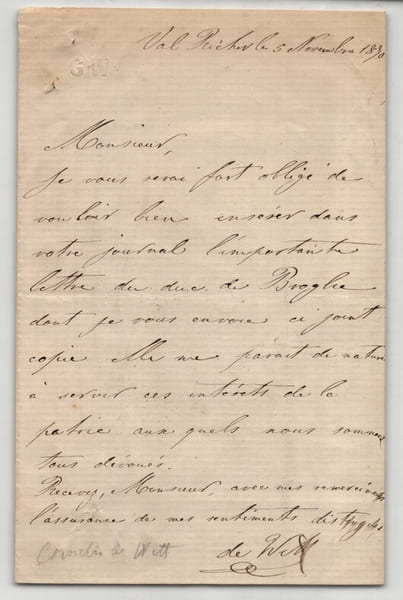 Val Richer le 5 Novembre 1870
Monsieur,
Je vous serai fort obligé de
vouloir bien insérer dans
votre journal l'importante
lettre du duc de Broglie
dont je vous envoie ci joint
copie. Elle me parait de nature
à servir ces intérêts de la
patrie aux quels nous sommes
tous dévoués.
Recevez, Monsieur, avec mes remerciments
l'assurance de mes sentiments distingués.
de Witt
Cornelis de Witt